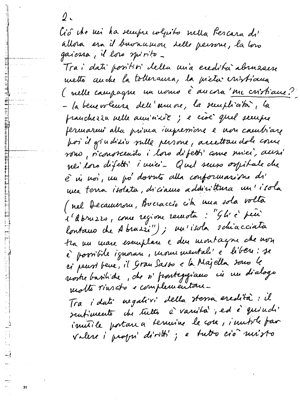 2.
Ciò che mi ha sempre colpito nella Pescara di
allora era il buonumore delle persone, la loro
gaiezza, il loro spirito.
Tra i dati positivi della mia eredità abruzzese
metto anche la tolleranza, la pietà cristiana
(nelle campagne un uomo è ancora "un cristiano")
- la benevolenza dell'umore, la semplicità, la
franchezza nelle amicizie; e cioè quel sempre
fermarmi alla prima impressione e non cambiare
poi il giudizio sulle persone, accettandole come
sono, riconoscendo i loro difetti come miei, anzi
nei loro difetti i miei. Quel senso ospitale che
è in noi, un po' dovuto alla conformazione di
una terra isolata, diciamo addirittura un'isola
(nel Decamerone, Boccaccio cita una sola volta
l'Abruzzo, come regione remota: "Gli è più
lontano che Abruzzi"); un'isola schiacciata
tra un mare esemplare e due montagne che non
è possibile ignorare, monumentali e libere: se
ci pensi bene, il Gran Sasso e la Majella sono le
nostre basiliche, che si fronteggiano in un dialogo
molto riuscito e complementare.
Tra i dati negativi della stessa eredità: il
sentimento che tutto è vanità, ed è quindi
inutile portare a termine le cose, inutile far
valere i propri diritti; e tutto ciò misto